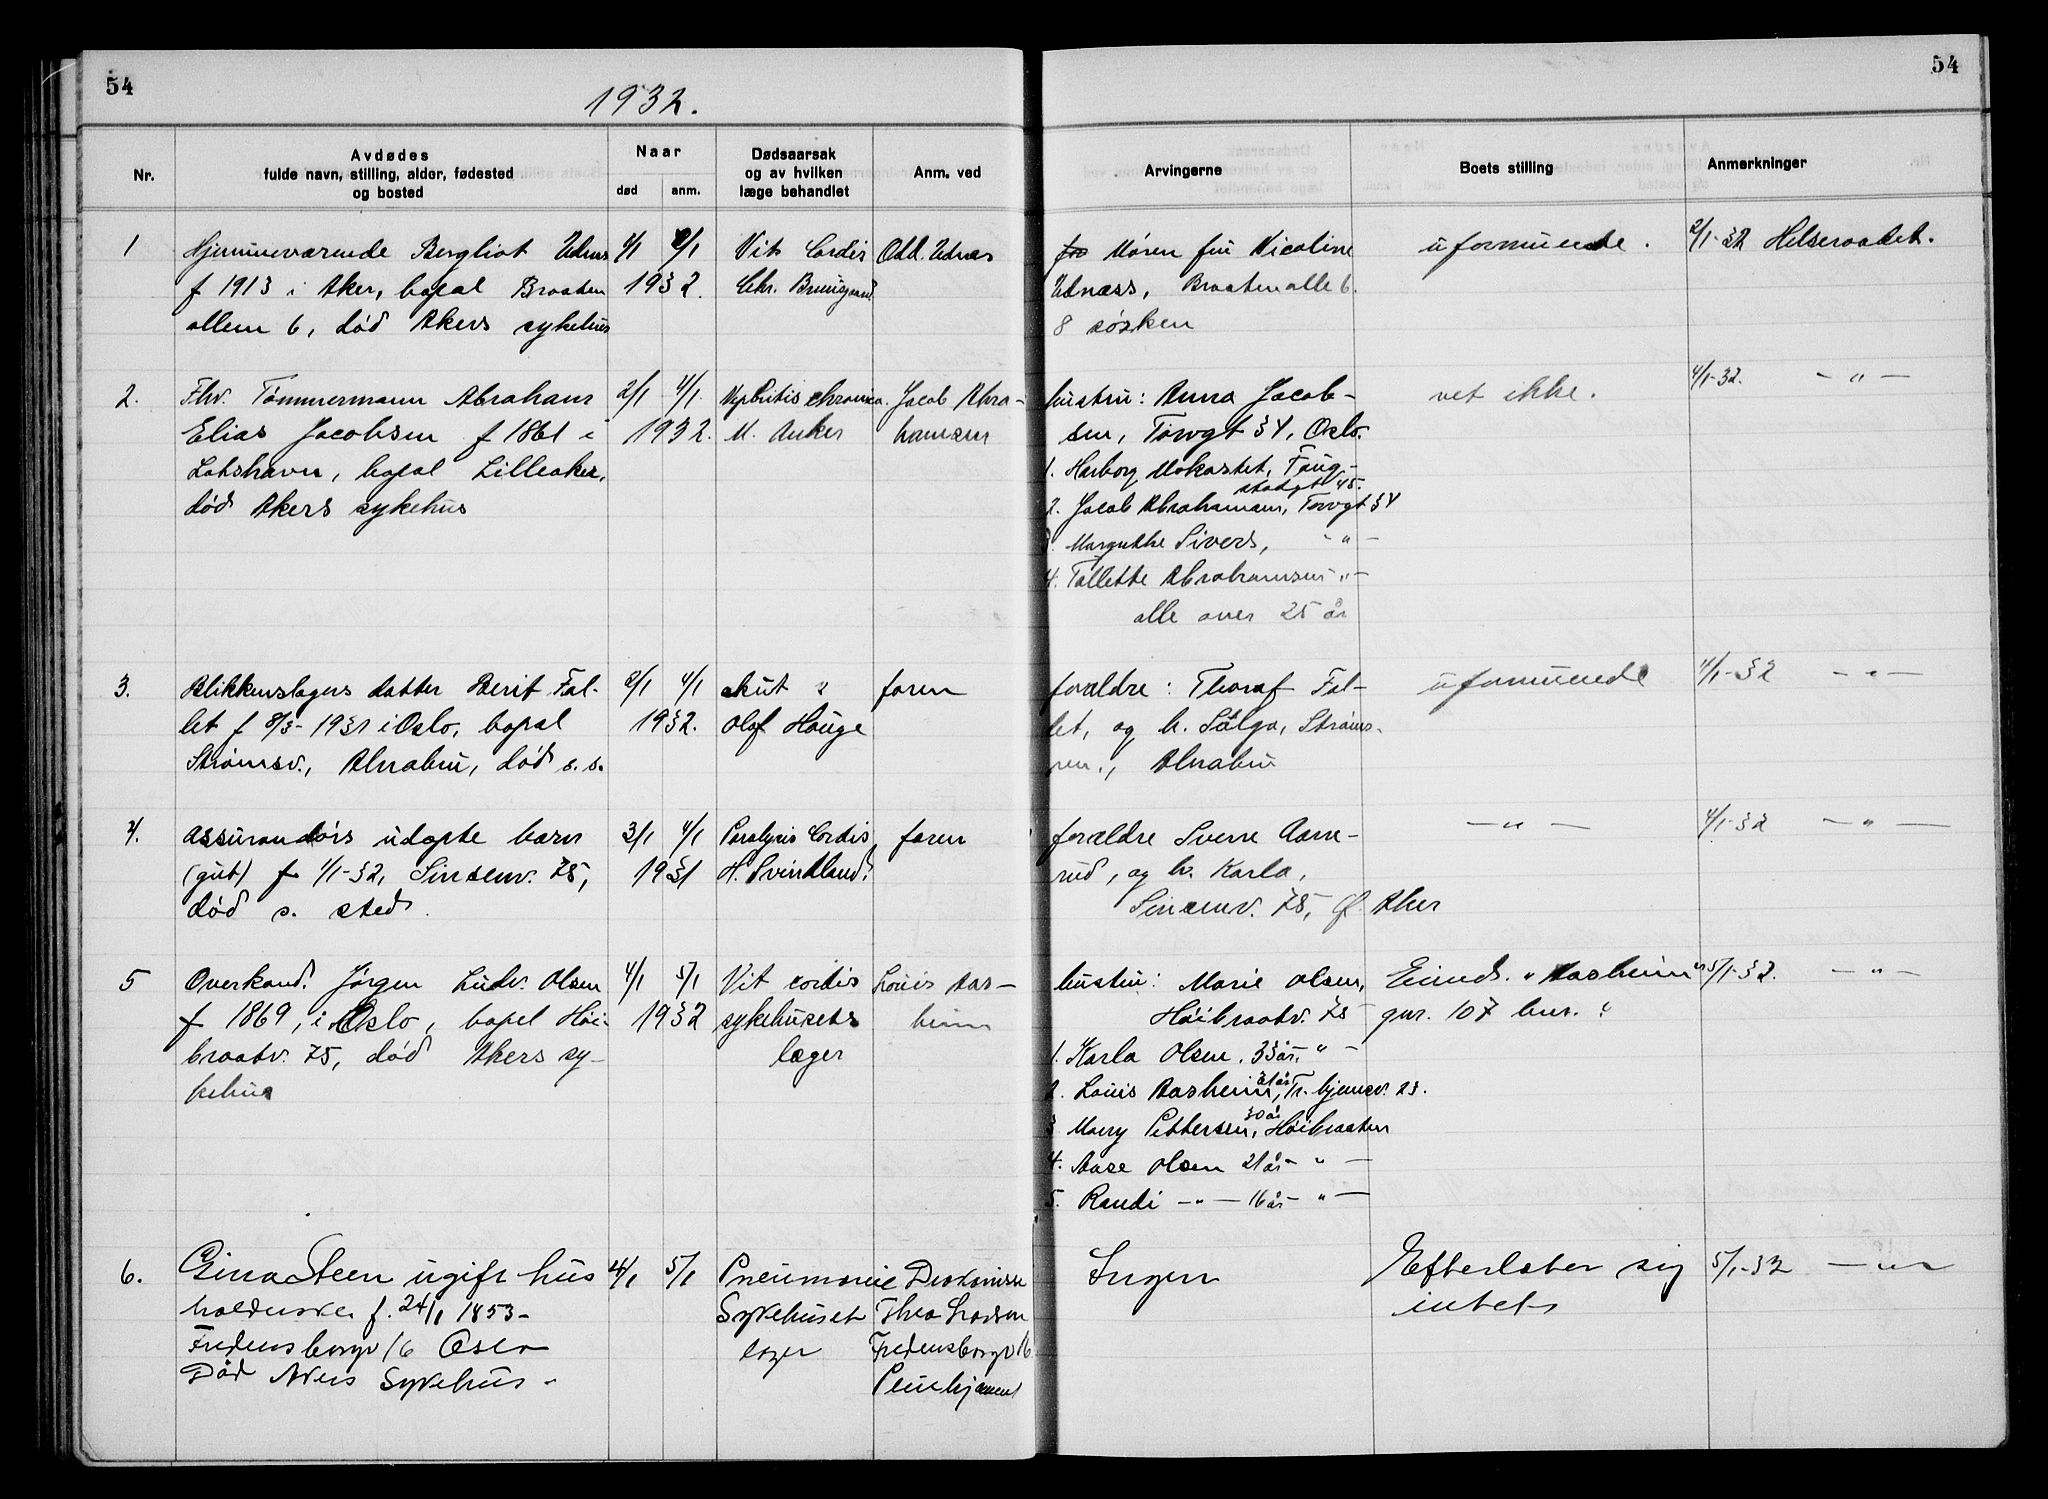 54
1932.
54
Nr.
Avdødes
fulde navn, stilling, alder, fødested
og bosted
Naar
død
anm.
Dødsaarsak
og av hvilken
læge behandlet
Anm. ved
Arvingerne
Boets stilling
Anmerkninger
1
Hjemmeværende Bergliot Udnæs
f 1913 i Aker, bopal Braaten
alleen 6, død Akers sykehus
1/1 2/1
1932.
Vit. Cordis
Chr.
Odd. Udnæs
Moren fru Nicoline
Udnæss, Braatenalle 6.
8 søsken
uformuende.
2/1-32 Helseraadet.
2.
Fhv. Tømmermann Abraham
Elias Jacobsen f 1861 i
bopal Lilleaker,
død Akers sykehus
2/1 4/1
1932.
Nephritis chronica.
M. Anker
Jacob Abra-
hamsen
hustru: Anna Jacob-
sen, Torvgt 34, Oslo.
1. Harborg Mokastet, Foug-
stadgt 45.
2. Jacob Abrahamsen, Torvgt 34
3. Margrethe Sivers, - " -
4. Tallette Abrahamsen - " -
alle over 25 år
vet ikke.
4/1-32. - " -
3.
Blikkenslagers datter Berit Fal-
let f 8/3-1931 i Oslo, bopal
Strømsv., Alnabru, død s. s.
2/1 4/1
1932.
akut
Olof Hauge
faren
foreldre: Thoraf Fal-
let, og h. Sølga, Strøms-
veien., Alnabru
uformuende
4/1-32 - " -
4.
Assurandørs udøpte barn
(gut) f 1/1-32, Sinsenv. 75,
død s. sted.
3/1 4/1
1931
Paralysis Cordis
H. Svindland.
faren
foreldre Sverre Aame-
rud, og h. Karla,
Sinsenv. 75, Ø. Aker
- " -
4/1-32 - " -
5
Overkond. Jørgen Ludv. Olsen
f 1869, i Oslo, bopel Høi-
braatv. 75, død Akers sy-
kehus
4/1 5/1
1932
Vit cordis
sykehusets
læger
Louis Aas-
heim
hustru: Marie Olsen,
Høibraatv. 75
1. Karla Olsen. 33 år. " -
2. Louis Aasheim, 31 år, Tr. hjemsv. 23.
3 Mary Pettersen, 30 år Høibraaten
4. Aase Olsen 21 år - " -
5. Randi - " - 16 år - " -
Eiend. "Aasheim"
gnr. 107 bnr. ?
5/1-32. - " -
6.
Gina Steen ugift hus
holderske f. 24/1 1853-
Fredensborgv 16 Oslo
Død Akers Sykehus -
4/1 5/1
Pneumonie
Sykehuset
læger
Diakonisse
Thea
Fredensborgv 16
Ingen
Efterlater sig
intet
5/1-32 - " -